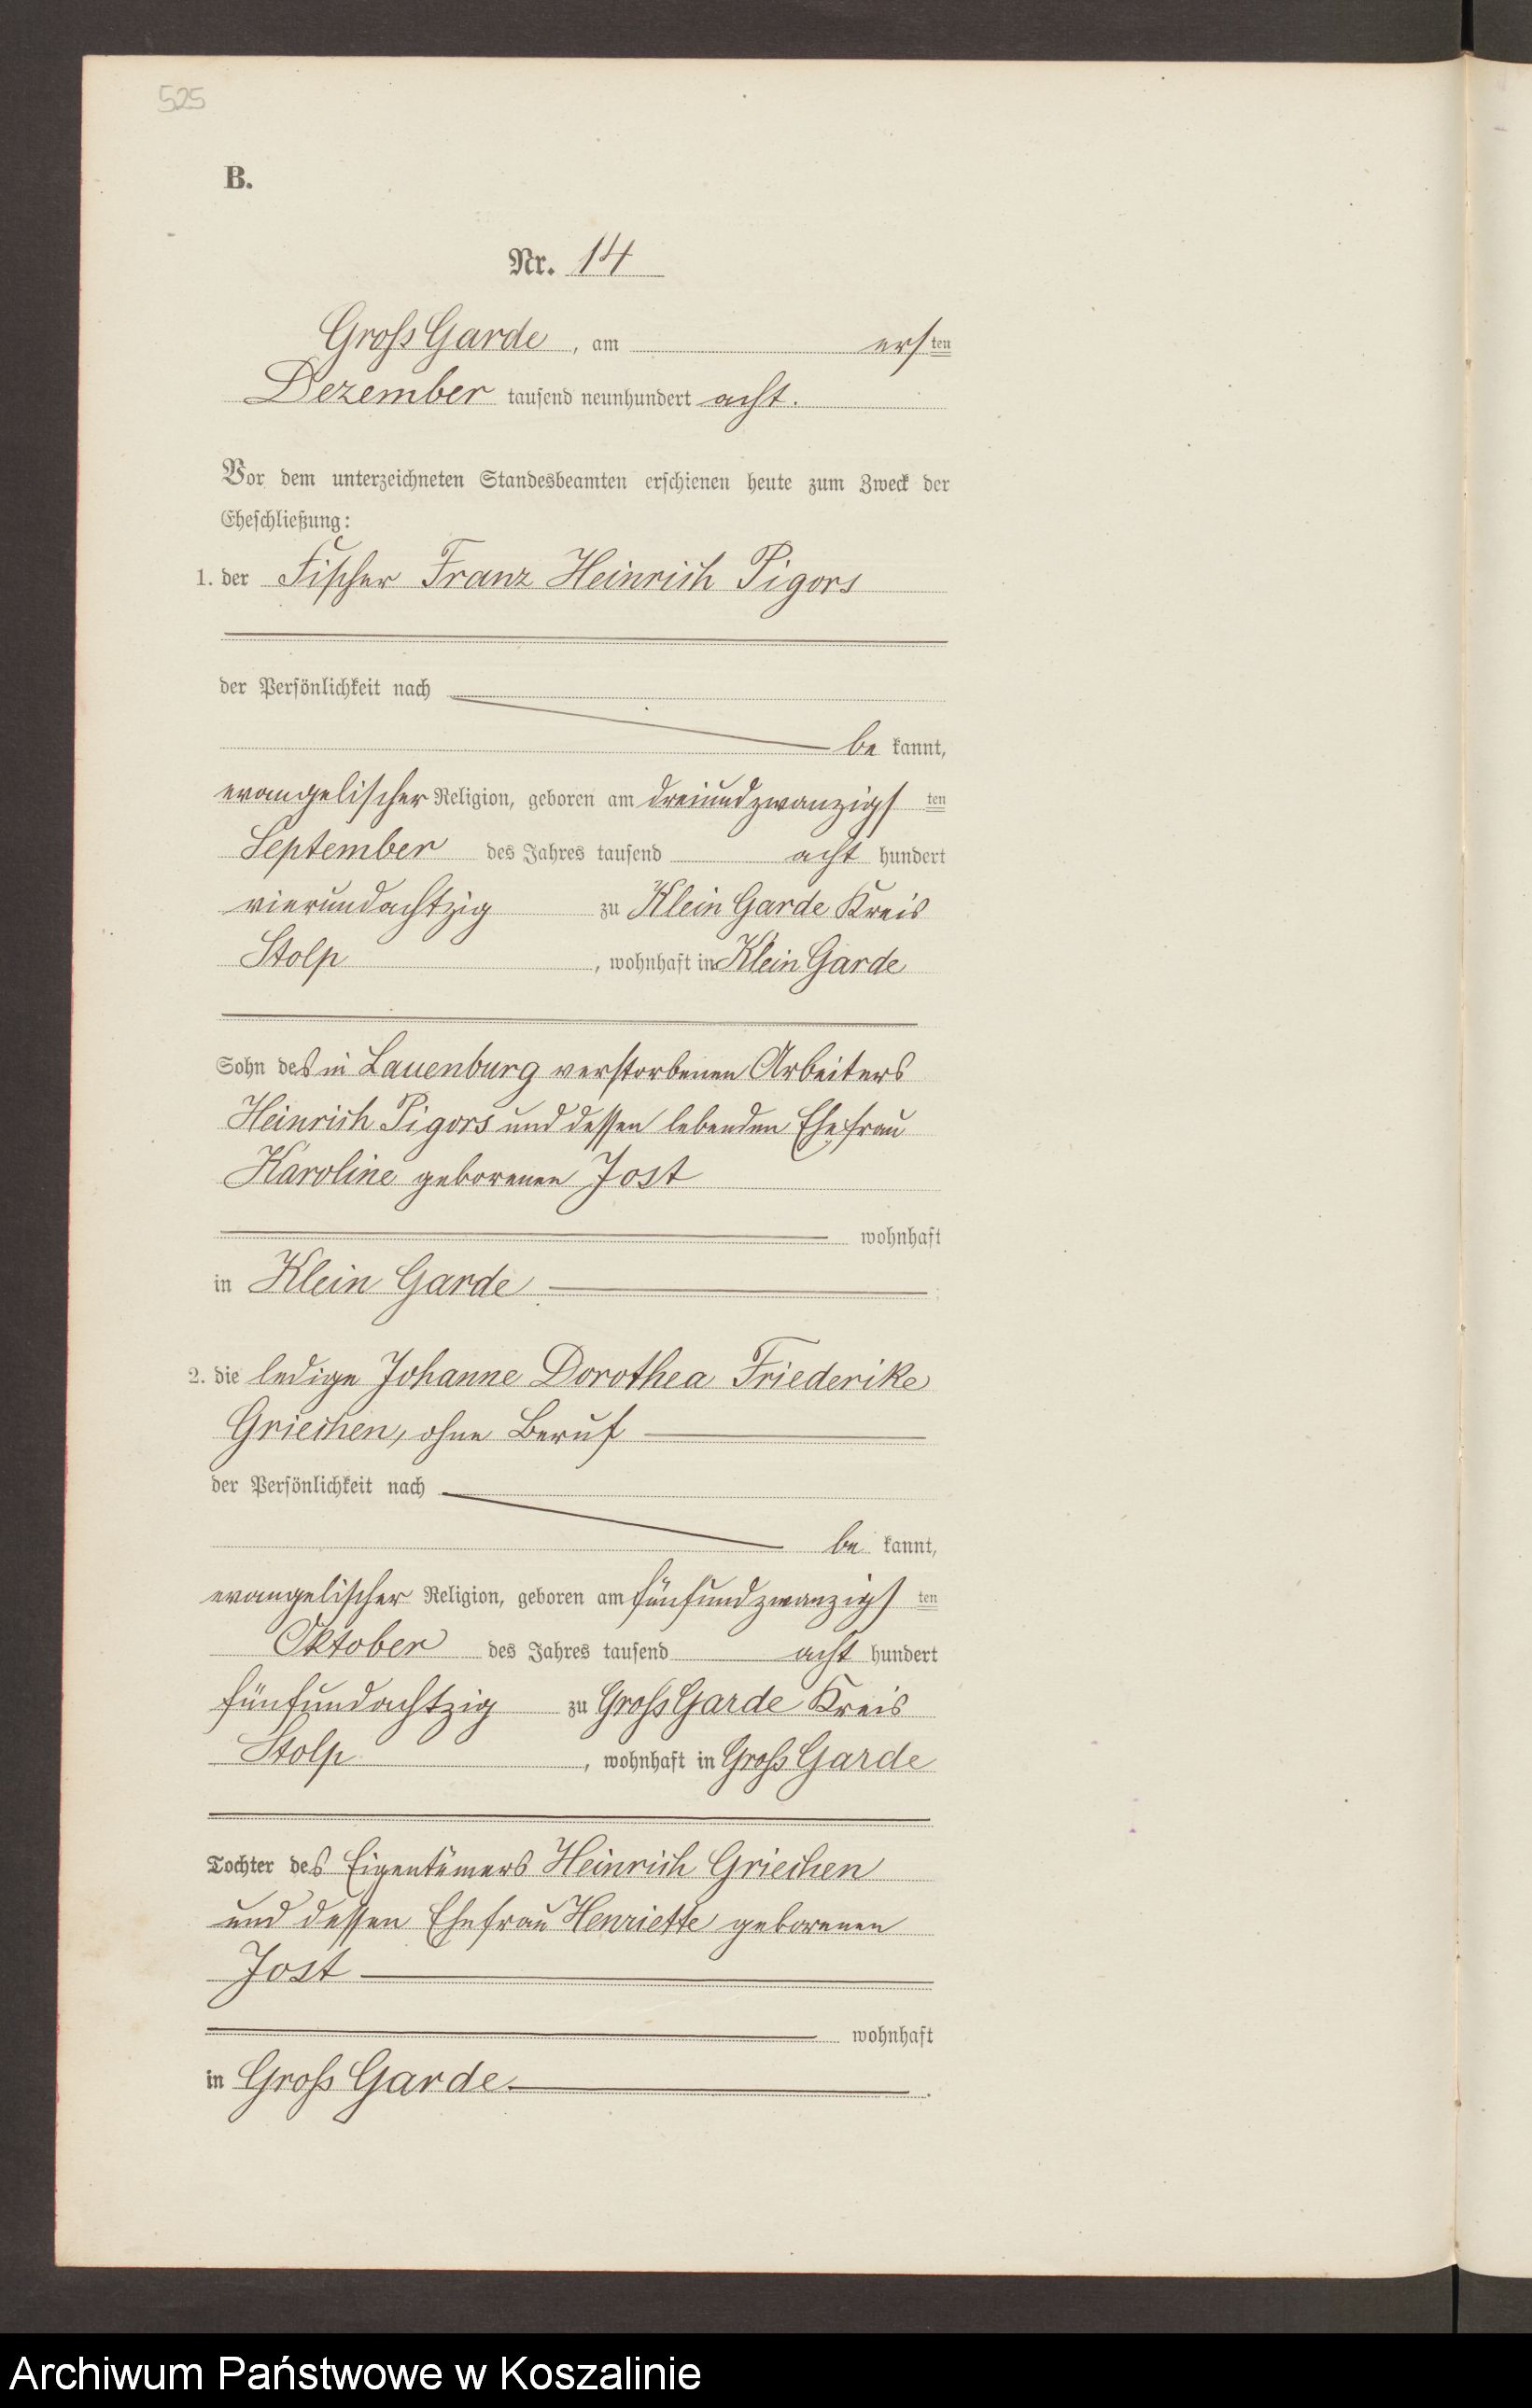 525
B.
Nr. 14
Groß Garde, am ersten
Dezember tausend neunhundert acht.
Vor dem unterzeichneten Standesbeamten erschienen heute zum Zweck der
Eheschließung:
1. der Fischer Franz Heinrich Pigors
der Persönlichkeit nach
be kannt,
evangelischer Religion, geboren am dreiundzwanzigsten
September des Jahres tausend acht hundert
vierundachtzig zu Klein Garde Kreis
Stolp, wohnhaft in Klein Garde
Sohn des in Lauenburg verstorbenen Arbeiters
Heinrich Pigors und dessen lebenden Ehefrau
Karoline geborenen Jost
wohnhaft
in Klein Garde
2. die ledige Johanne Dorothea Friederike
Griechen, ohne Beruf
der Persönlichkeit nach
be kannt,
evangelischer Religion, geboren am fünfundzwanzigsten
Oktober des Jahres tausend acht hundert
fünfundachtzig zu Groß Garde Kreis
Stolp, wohnhaft in Groß Garde
Tochter des Eigentümers Heinrich Griechen
und dessen Ehefrau Henriette geborenen
Jost
wohnhaft
in Groß Garde.
Archiwum Państwowe w Koszalinie